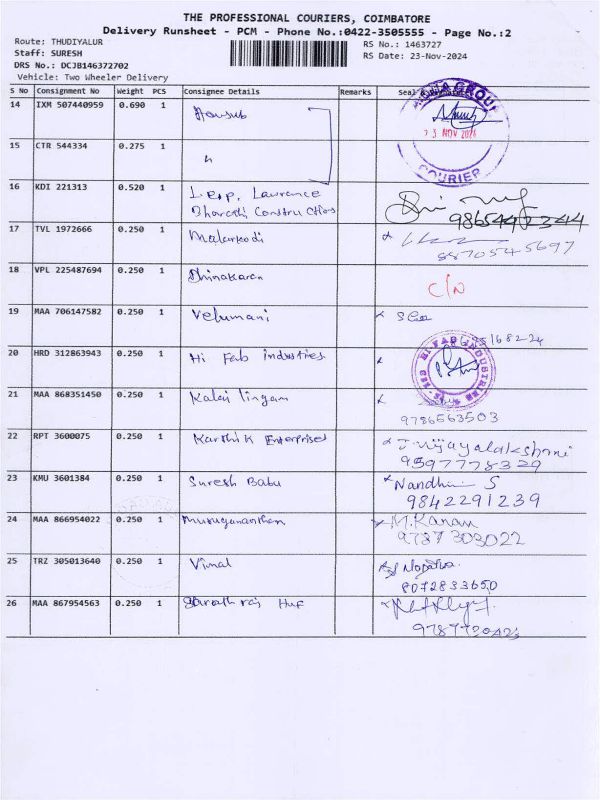 THE PROFESSIONAL COURIERS, COIMBATORE
Delivery Runsheet - PCM - Phone No.:0422-3505555 - Page No.:2
Route: THUDIYALUR
RS No.: 1463727
Staff: SURESH
RS Date: 23-Nov-2024
DRS No.: DCJB146372702
Vehicle: Two Wheeler Delivery
S No Consignment No Weight PCS Consignee Details Remarks Seal &
14 IXM 507440959 0.690 1
NOV 2024
15 CTR 544334 0.275 1 "
COURIER
16 KDI 221313 0.520 1 Lawrance
Bharathi Constructions
17 TVL 1972666 0.250 1 Malarkodi
8870545697
18 VPL 225487694 0.250 1 Dhinakaran C/N
19 MAA 706147582 0.250 1 Velumani
20 HRD 312863943 0.250 1 Hi Fab Industries HI FAB INDUSTRIES
21 MAA 868351450 0.250 1 Kalai lingam
9786563503
22 RPT 3600075 0.250 1 Karthik Enterprises J. Vijayalakshmi
9597778329
23 KMU 3601384 0.250 1 Suresh Babu Nandhini S
9842291239
24 MAA 866954022 0.250 1 Murugananthan M.Kanan
9787303022
25 TRZ 305013640 0.250 1 Vimal
8072833650
26 MAA 867954563 0.250 1 Huf